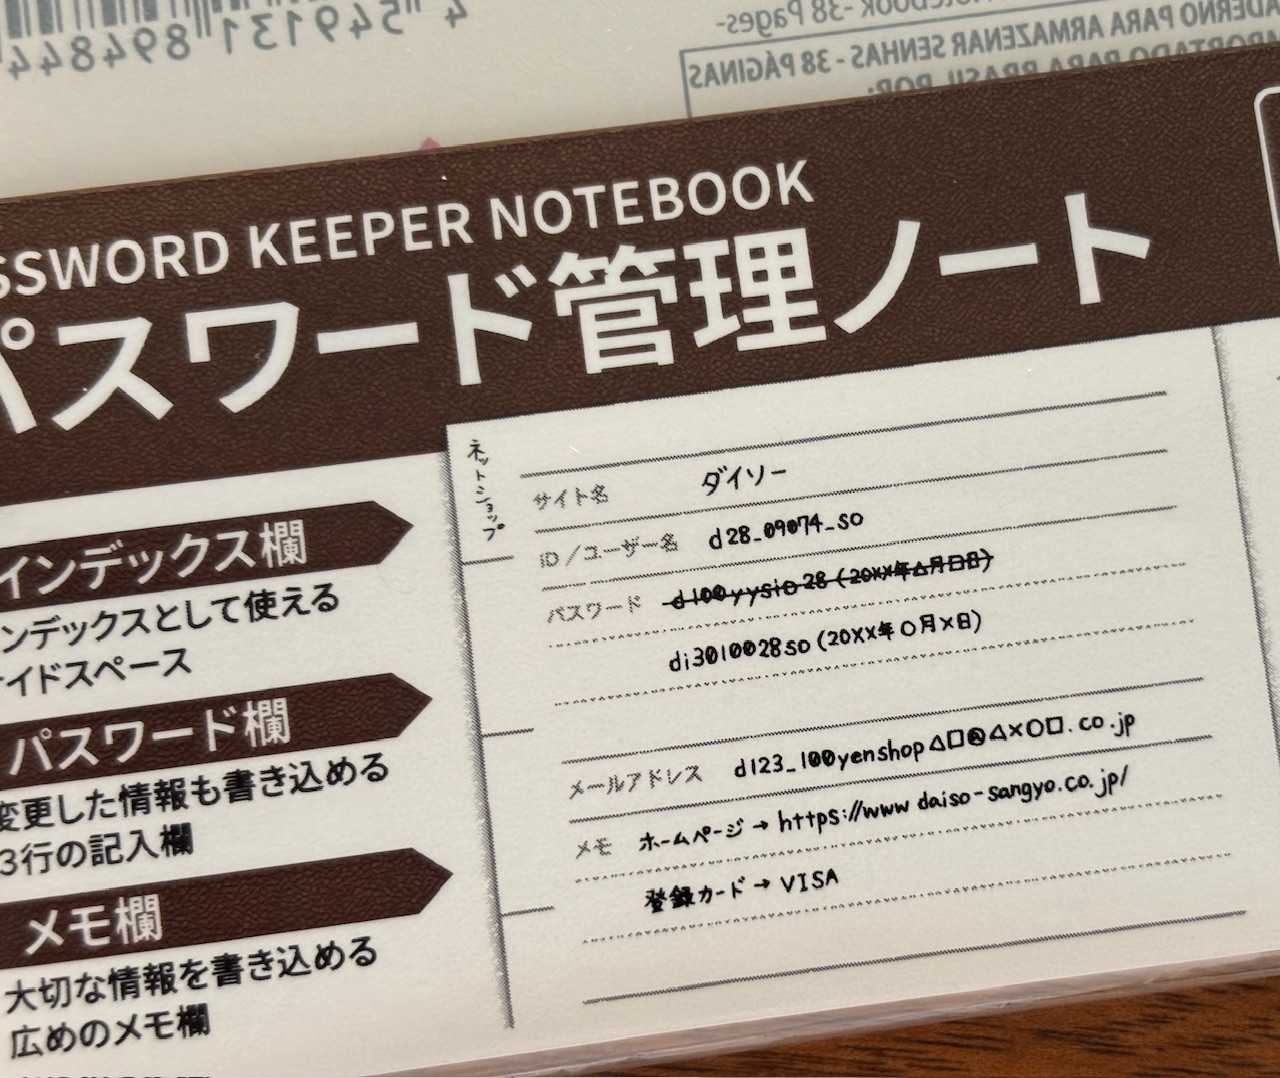 4 549131 894844
NOTEBOOK -38 Pages-
CADERNO PARA ARMAZENAR SENHAS - 38 PÁGINAS
IMPORTADO PARA BRASIL POR:
SSWORD KEEPER NOTEBOOK
パスワード管理ノート
ネットショップ
サイト名 ダイソー
ID/ユーザー名 d28_09074_so
パスワード d100yysio28(20XX年△月日日)
di3010028so(20XX年○月×日)
メールアドレス d123_100yenshop△□@△×○□.co.jp
メモ ホームページ→https://www daiso-sangyo.co.jp/
登録カード→VISA
インデックス欄
ンデックスとして使える
イドスペース
パスワード欄
変更した情報も書き込める
3行の記入欄
メモ欄
大切な情報を書き込める
広めのメモ欄